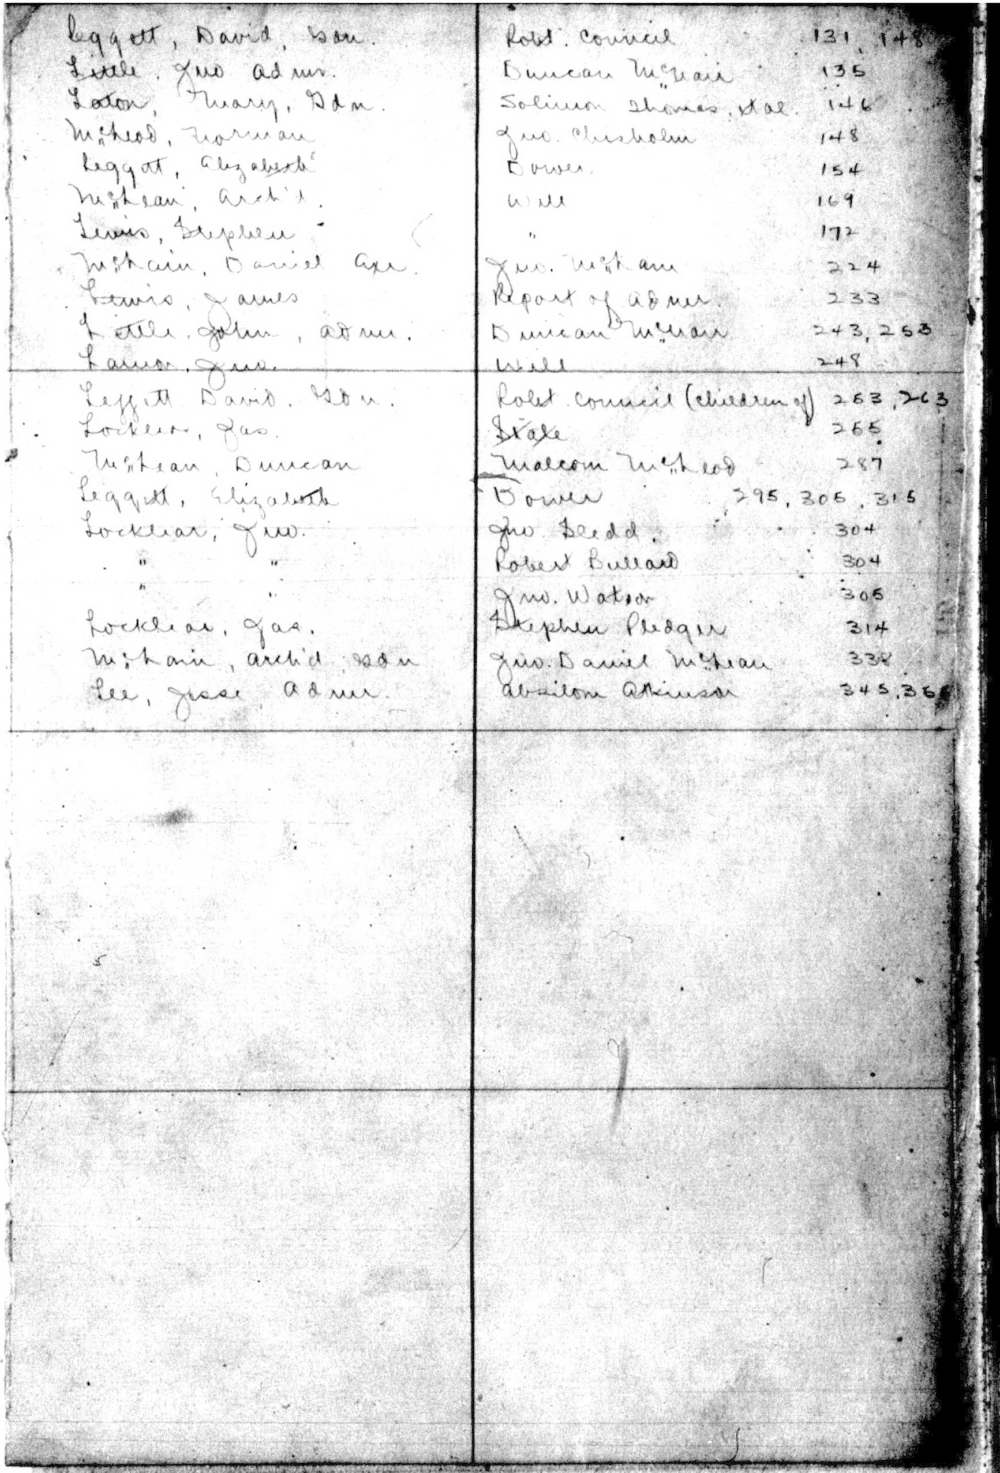 Leggett, David, Gdn. Robt. Council 131, 148
Little, Jno Admr. Duncan McNair 135
Mary, Gdn. Solimon Thomas, et al. 146
McLeod, Norman Jno. Chisholm 148
Leggett, Elizabeth Dower 154
McLean, Arch'd. Will 169
Lewis, Stephen " 172
McLain, Daniel Exr. Jno. McLain 224
Lewis, James Report of Admr. 233
Little, John, Admr. Duncan McNair 243, 253
Jno. Will 248
Leggett David. Gdn. Robt Council (children of) 263, 263
Locklear, Jas. State 265
McLean, Duncan Malcom McLeod 287
Leggett, Elizabeth Dower 295, 305, 315
Locklear, Jno. Jno. Sledd. 304
" " Robert Bullard 304
" " Jno. Watson 305
Locklear, Jas. Stephen Pledger 314
McLain, Arch'd Gdn Jno. Daniel McLean 338
Lee, Jesse Admr. Absilom Atkinson 345,